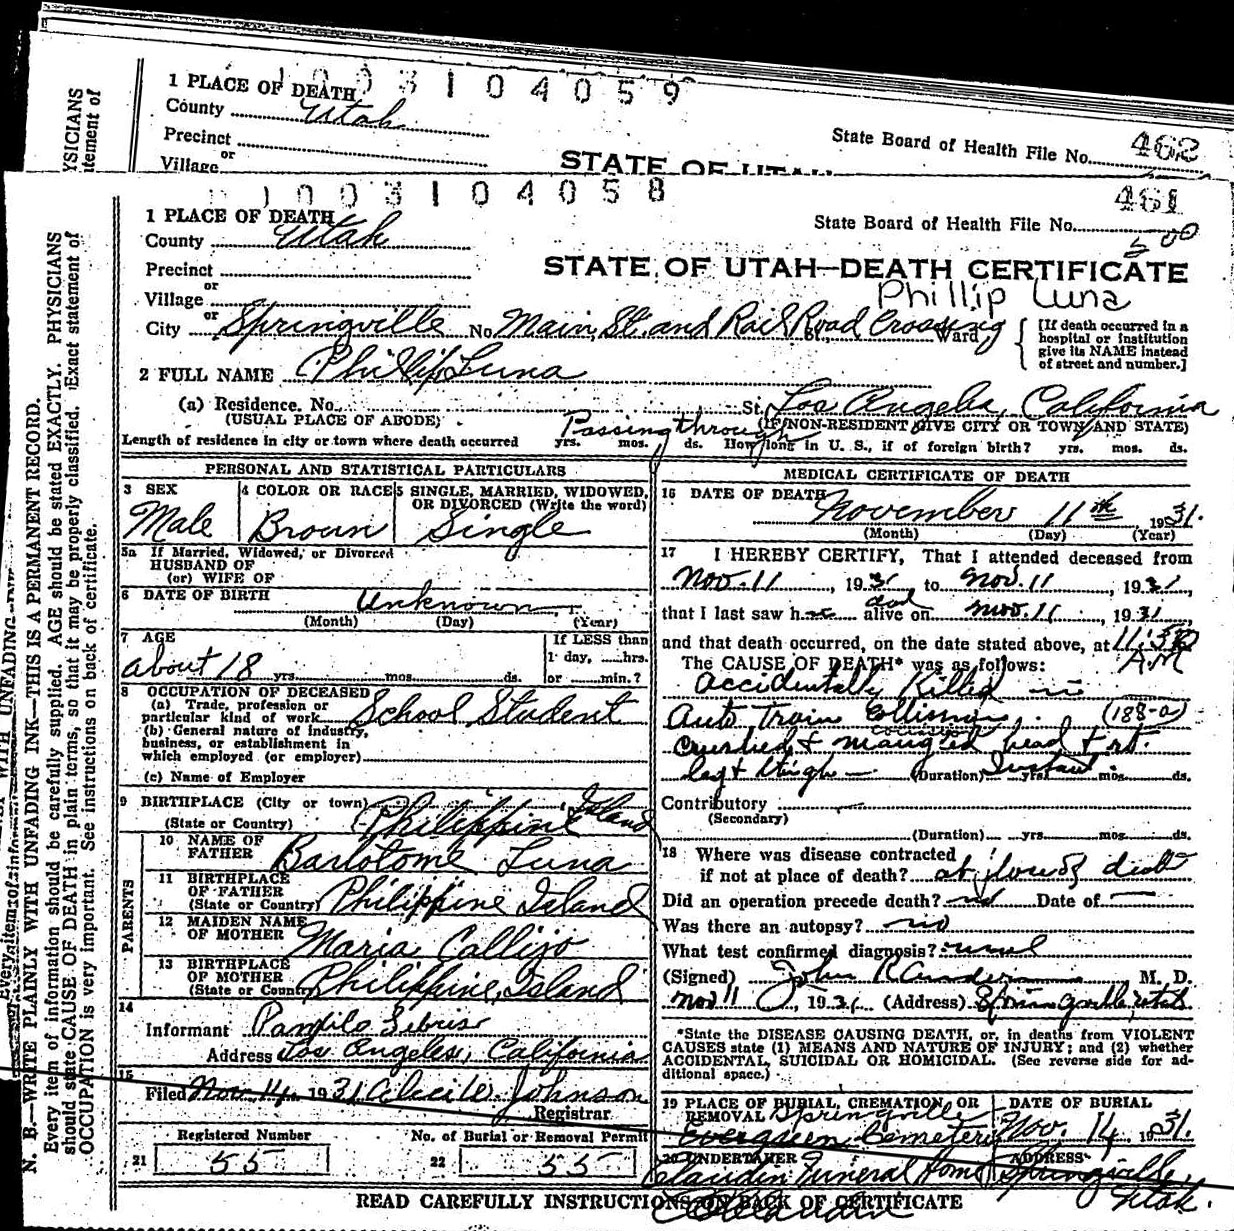 1003104059
1 PLACE OF DEATH
County Utah
State Board of Health File No. 462
Precinct
or
Village
STATE OF UTAH
YSICIANS
tement of
1003104058
461
1 PLACE OF DEATH
County Utah
State Board of Health File No.
500
Precinct
STATE OF UTAH—DEATH CERTIFICATE
or
Village
Phillip Luna
or
City Springville No. Main, St. and Rail Road Crossing St., Ward
[If death occurred in a hospital or institution give its NAME instead of street and number.]
2 FULL NAME Phillip Luna
(a) Residence. No. St. Los Angeles, California
(USUAL PLACE OF ABODE) (IF NON-RESIDENT GIVE CITY OR TOWN AND STATE)
Passing through
Length of residence in city or town where death occurred yrs. mos. ds. How long in U. S., if of foreign birth? yrs. mos. ds.
PERSONAL AND STATISTICAL PARTICULARS
3 SEX Male
4 COLOR OR RACE Brown
5 SINGLE, MARRIED, WIDOWED, OR DIVORCED (Write the word) Single
5a If Married, Widowed, or Divorced
HUSBAND OF
(or) WIFE OF
6 DATE OF BIRTH Unknown
(Month) (Day) (Year)
7 AGE
about 18 yrs. mos. ds.
If LESS than
1 day, hrs.
or min.?
8 OCCUPATION OF DECEASED
(a) Trade, profession or
particular kind of work School Student
(b) General nature of industry,
business, or establishment in
which employed (or employer)
(c) Name of Employer
9 BIRTHPLACE (City or town)
(State or Country) Philippine Island
PARENTS
10 NAME OF
FATHER Bartotome Luna
11 BIRTHPLACE
OF FATHER
(State or Country) Philippine Island
12 MAIDEN NAME
OF MOTHER Maria Callijo
13 BIRTHPLACE
OF MOTHER
(State or Country) Philippine, Island
14
Informant Panfilo
Address Los Angeles, California
15
Filed Nov. 14, 1931 Johnson
Registrar
Registered Number
No. of Burial or Removal Permit
21 55
22 55
MEDICAL CERTIFICATE OF DEATH
16 DATE OF DEATH
November 11th, 1931.
(Month) (Day) (Year)
17 I HEREBY CERTIFY, That I attended deceased from
Nov. 11, 1931 to Nov. 11, 1931,
that I last saw h alive on Nov. 11, 1931,
and that death occurred, on the date stated above, at 11:30
A.M
The CAUSE OF DEATH* was as follows:
Accidentally Killed in
Auto Train Collision. (188-a)
crushed & mangled head & rt.
leg & thigh — (Duration) Instant yrs. mos. ds.
Contributory
(Secondary)
(Duration) yrs. mos. ds.
18 Where was disease contracted
if not at place of death? at place of death
Did an operation precede death? no Date of —
Was there an autopsy? no
What test confirmed diagnosis? usual
(Signed) John R. Anderson M. D.
Nov 11, 1931 (Address) Springville, Utah
*State the DISEASE CAUSING DEATH, or, in deaths from VIOLENT
CAUSES state (1) MEANS AND NATURE OF INJURY; and (2) whether
ACCIDENTAL, SUICIDAL OR HOMICIDAL. (See reverse side for ad-
ditional space.)
19 PLACE OF BURIAL, CREMATION, OR
REMOVAL Springville
Evergreen Cemetery
DATE OF BURIAL
Nov. 14, 1931.
20 UNDERTAKER
Claudin Funeral Home
ADDRESS
Springville, Utah.
READ CAREFULLY INSTRUCTIONS ON BACK OF CERTIFICATE
N. B.—WRITE PLAINLY WITH UNFADING INK—THIS IS A PERMANENT RECORD.
Every item of information should be carefully supplied. AGE should be stated EXACTLY. PHYSICIANS
should state CAUSE OF DEATH in plain terms, so that it may be properly classified. Exact statement of
OCCUPATION is very important. See instructions on back of certificate.